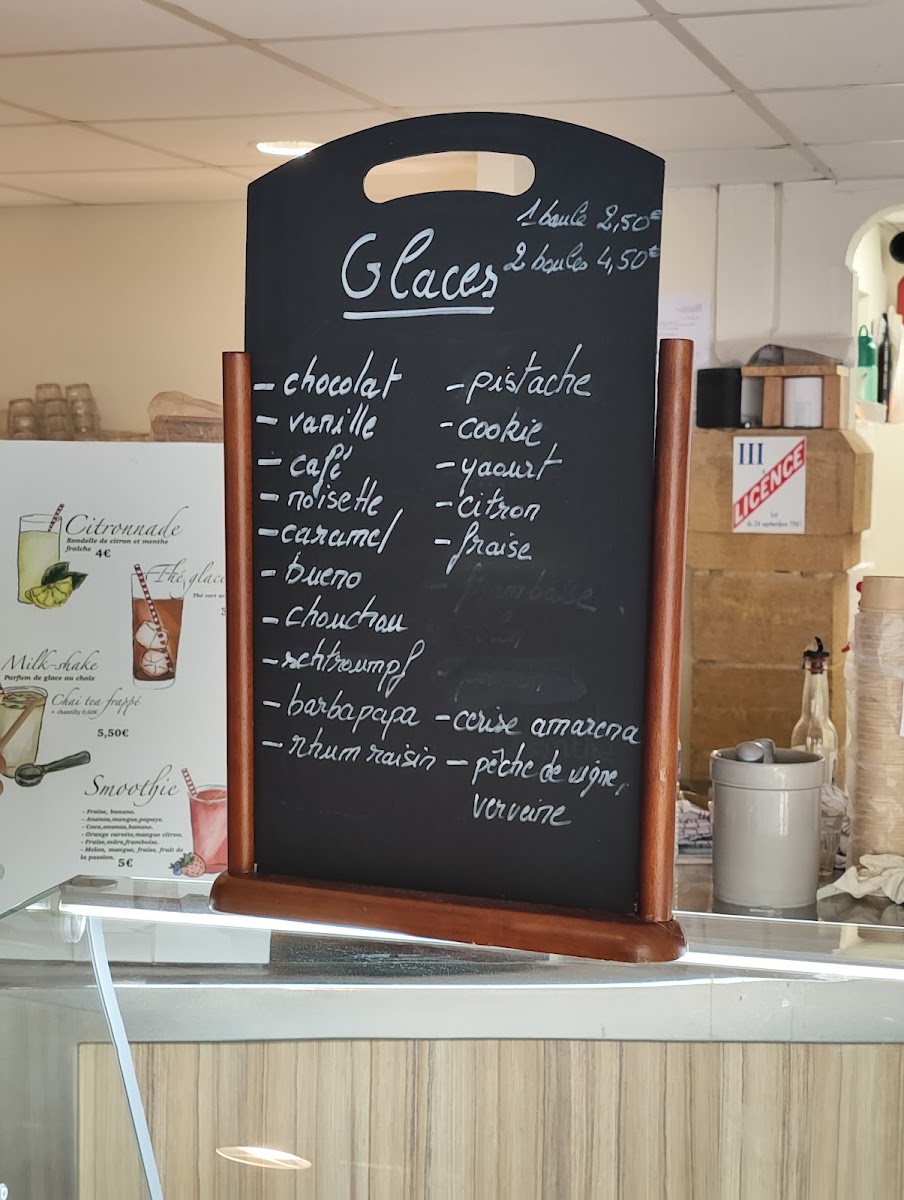 1 boule 2,50€
2 boules 4,50€
Glaces
- chocolat
- vanille
- café
- noisette
- caramel
- bueno
- chouchou
- schtroumpf
- barbapapa
- rhum raisin
- pistache
- cookie
- yaourt
- citron
- fraise
- framboise
- cerise amarena
- pêche de vigne,
verveine
Citronnade
Rondelle de citron et menthe
fraîche 4€
Thé glacé
Thé vert
Milk-shake
Parfum de glace au choix
Chai tea frappé
+ chantilly 0,60€
5,50€
Smoothie
- Fraise, banane.
- Ananas,mangue,papaye.
- Coco,ananas,banane.
- Orange carotte,mangue citron.
- Fraise,mûre,framboise.
- Melon, mangue, fraise, fruit de
la passion. 5€
III
LICENCE
Loi
du 24 septembre 1941